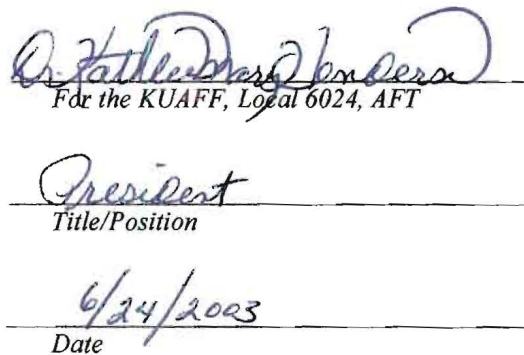 Dr. Kathleen Mary Henderson
For the KUAFF, Local 6024, AFT
President
Title/Position
6/24/2003
Date